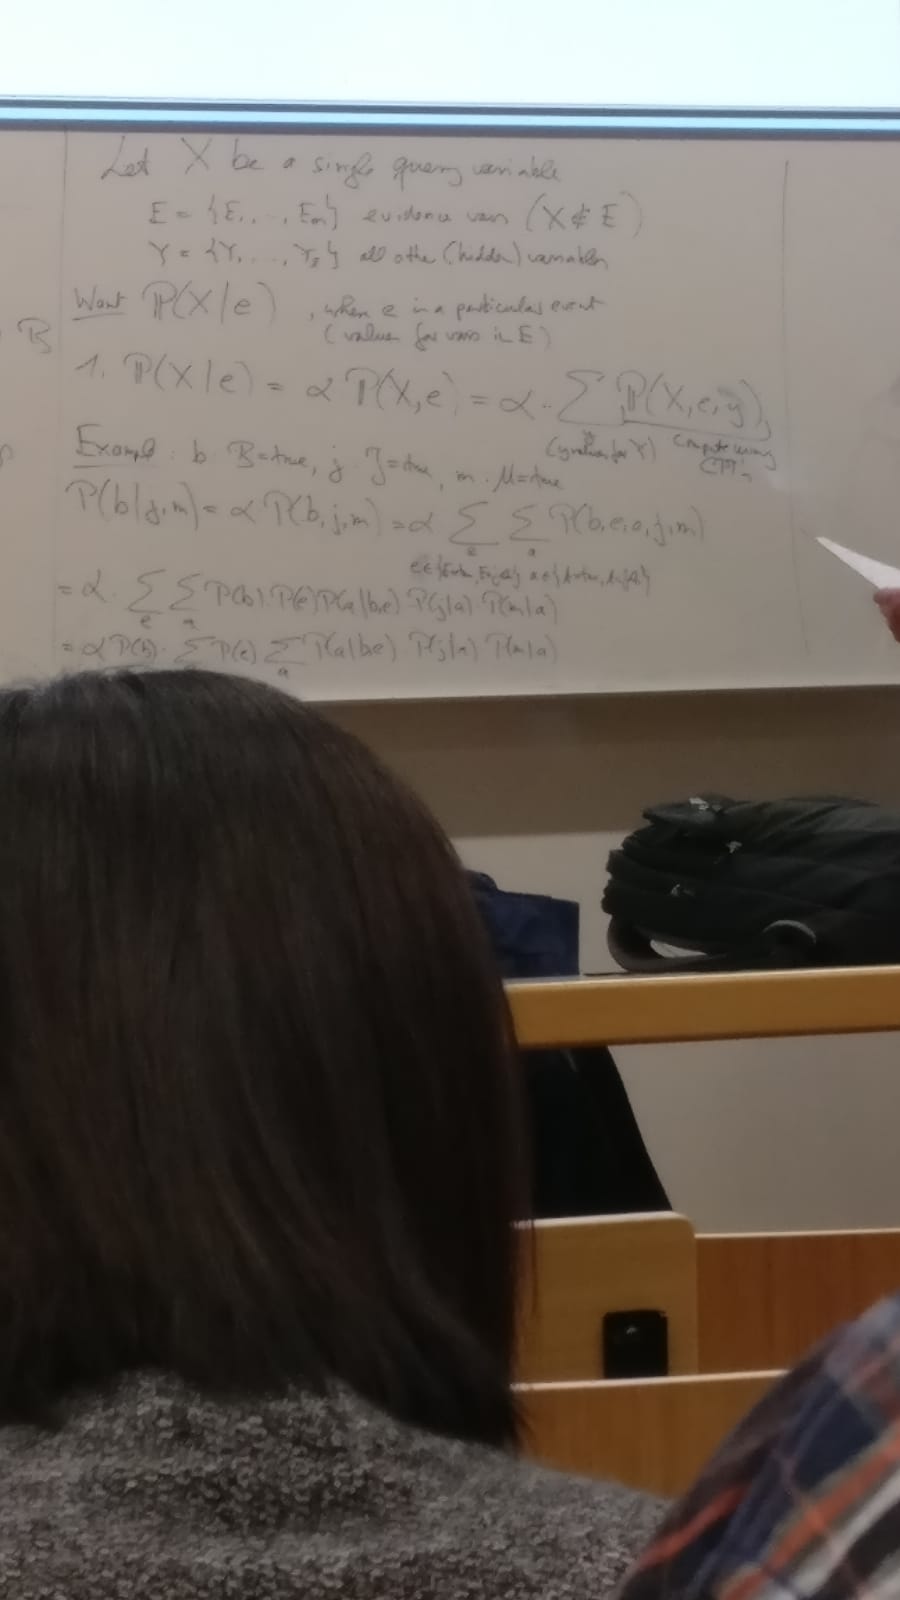 Let X be a single query variable
E = {E₁, .., Eₘ} evidence vars (X ∉ E)
Y = {Y₁, ..., Yₛ} all other (hidden) variables
Want ℙ(X|e) , when e is a particular event
(values for vars in E)
B
1. ℙ(X|e) = α ℙ(X,e) = α · Σ ℙ(X,e,y)
y
(y values for Y) compute using CPT's
Example: b : B=true, j : J=true, m : M=true
P(b|j,m) = α P(b,j,m) = α Σ Σ P(b,e,a,j,m)
e a
= α · Σ Σ P(b) · P(e) P(a|b,e) P(j|a) P(m|a)
e a
= α P(b) · Σ P(e) Σ P(a|b,e) P(j|a) P(m|a)
a